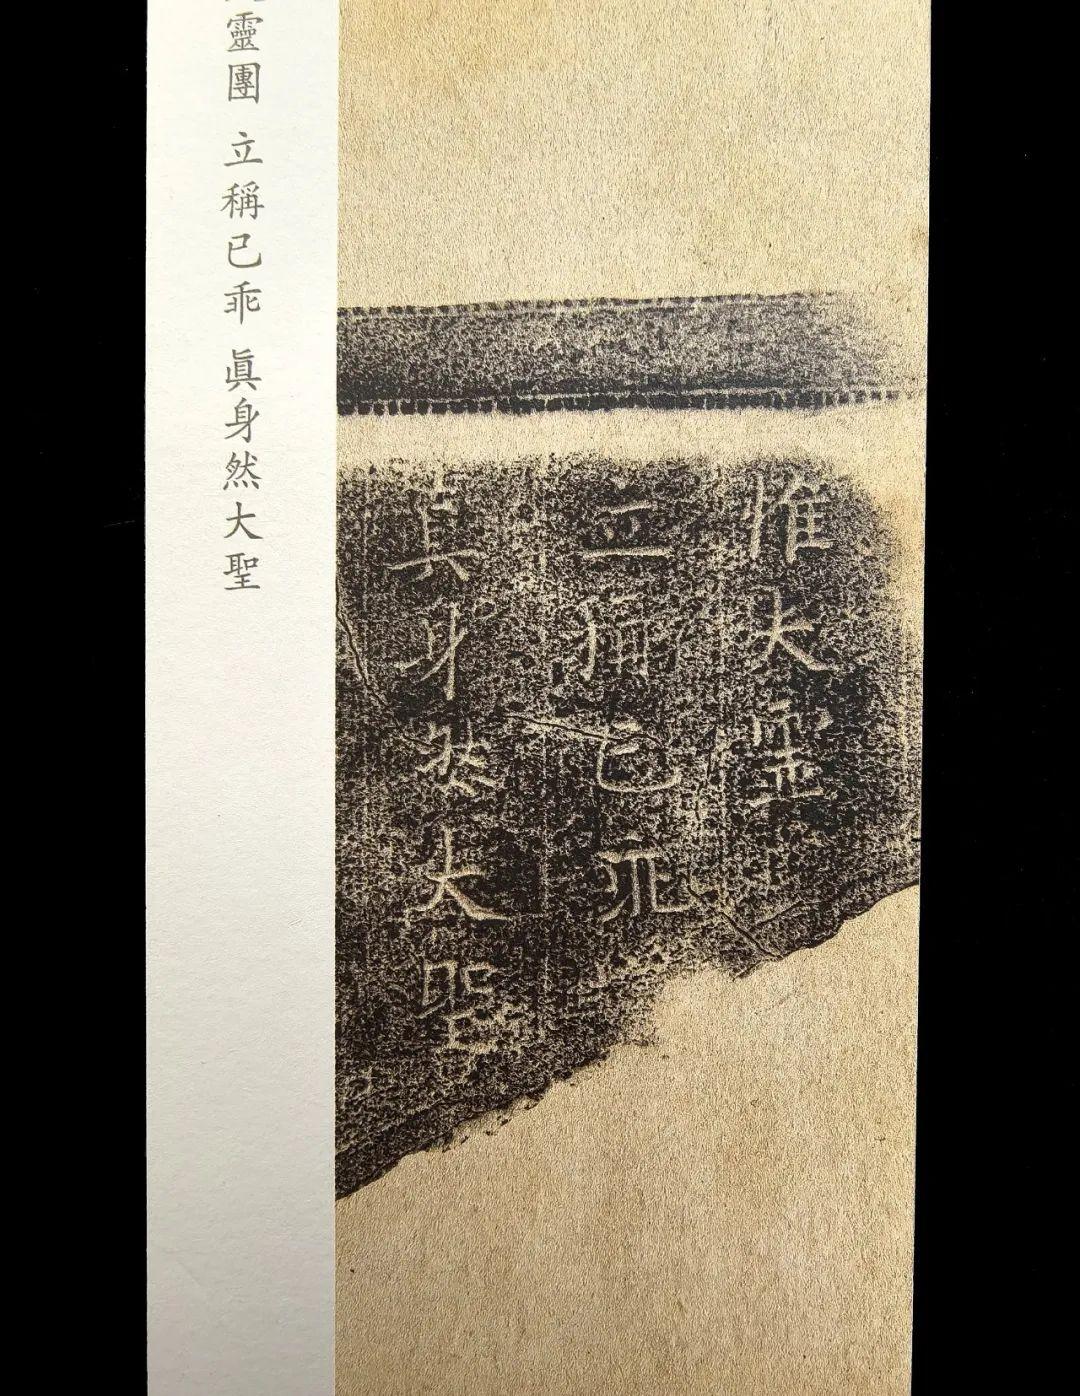 靈團 立稱已乖 眞身然大聖
惟大靈
立稱已乖
真身然大聖